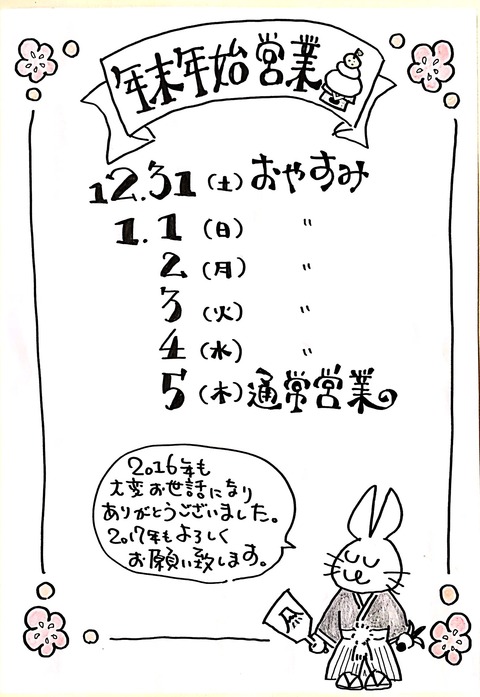 年末年始営業
12.31(土)おやすみ
1.1(日)〃
2(月)〃
3(火)〃
4(水)〃
5(木)通常営業
2016年も
大変お世話になり
ありがとうございました。
2017年もよろしく
お願い致します。